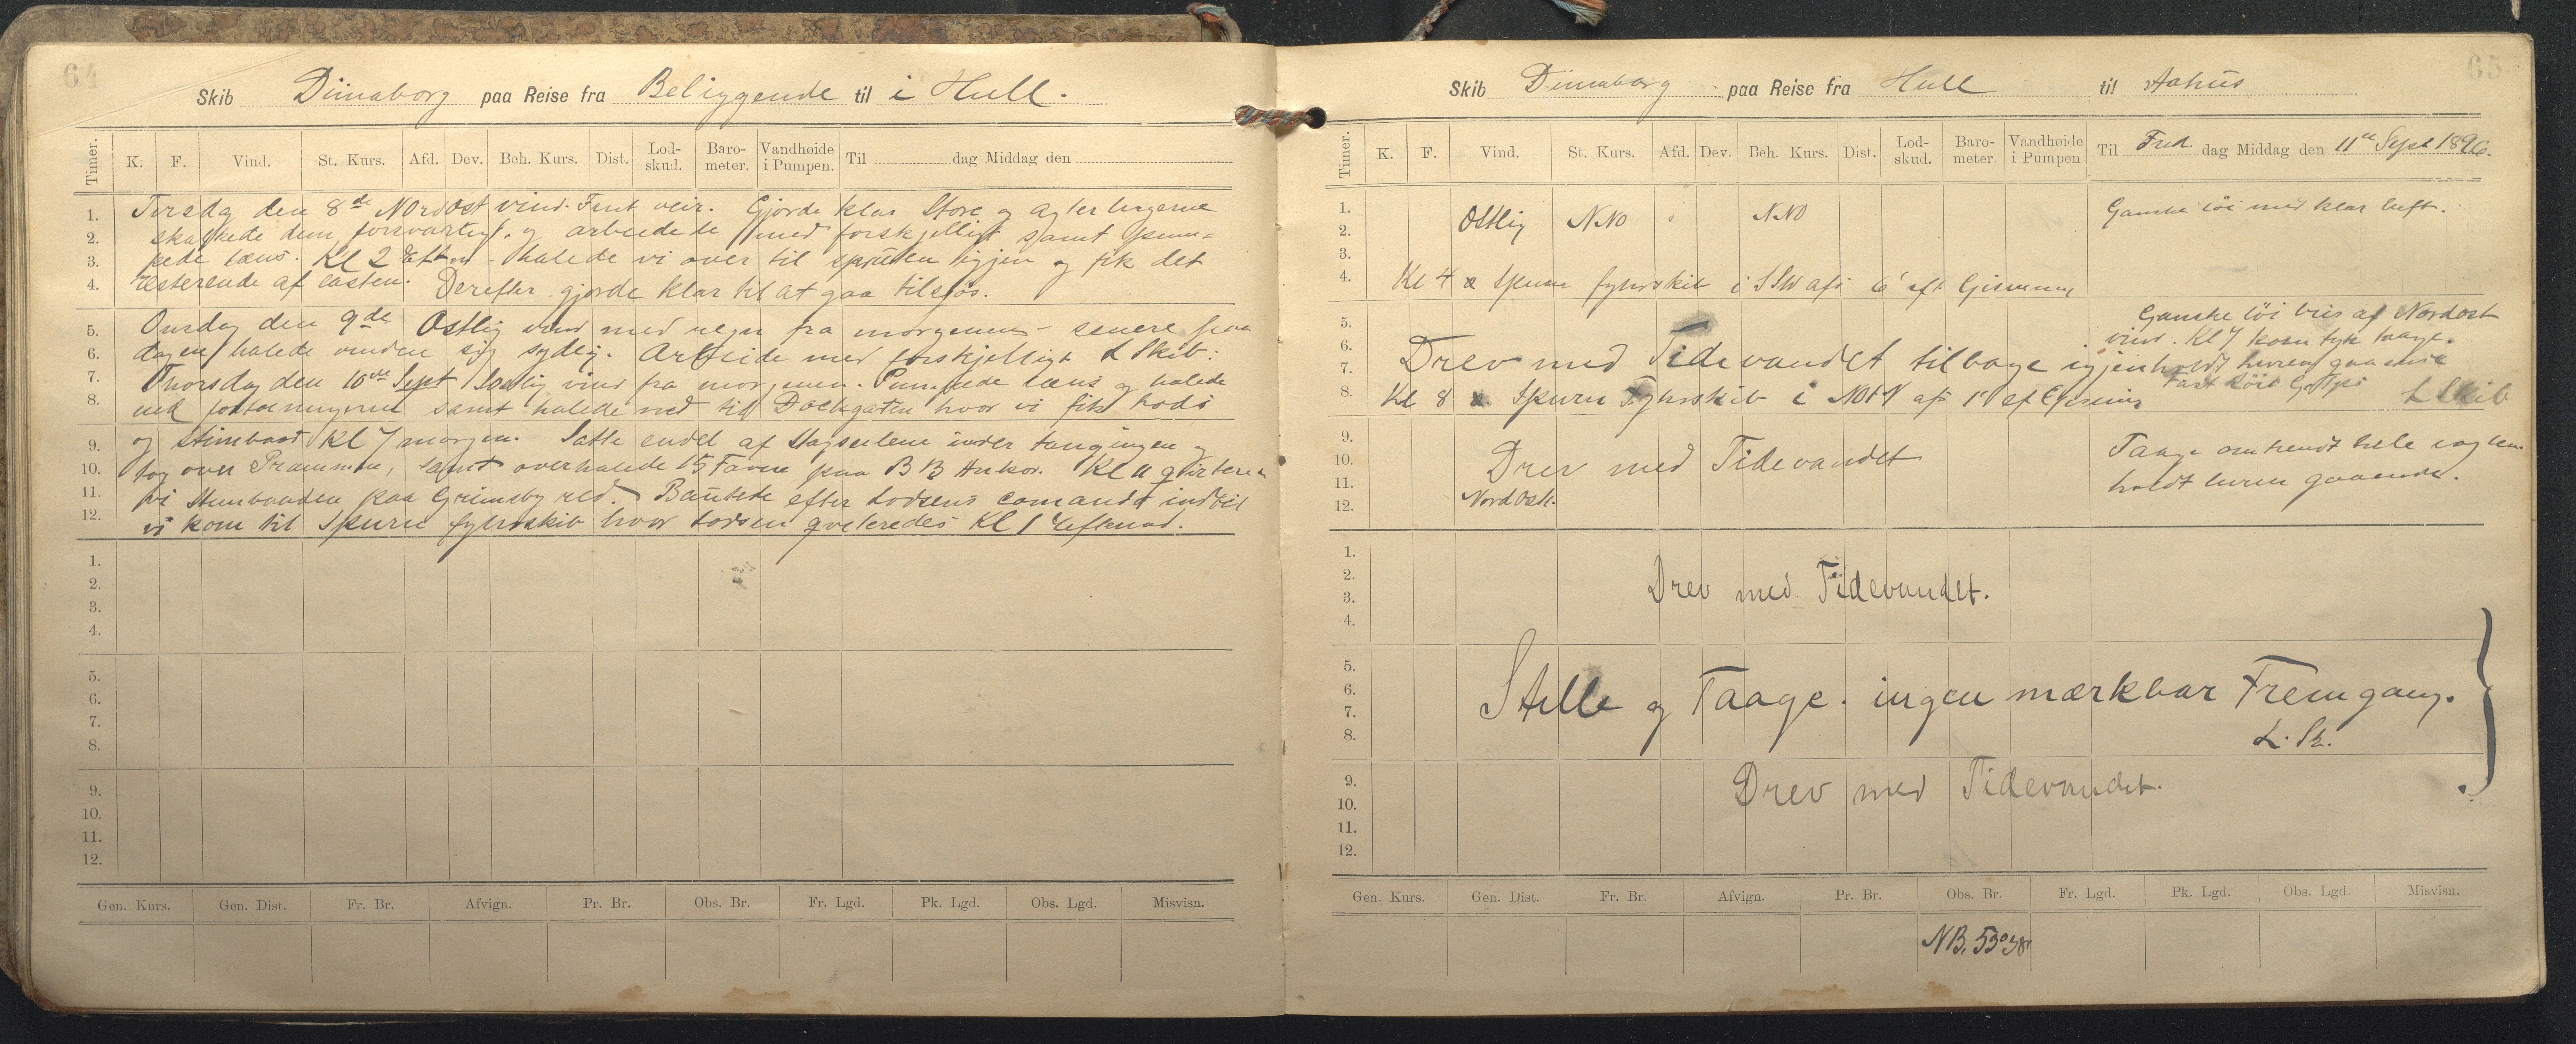 64
Skib Dünaborg paa Reise fra Beliggende til i Hull.
Timer. K. F. Vind. St. Kurs. Afd. Dev. Beh. Kurs. Dist. Lod-skud. Baro-meter. Vandhøide i Pumpen. Til dag Middag den
1. Tirsdag den 8de Nordost vind. Fint veir. Gjorde klar Store og agter lugerne
2. skalkede dem forsvarligt. og arbeidede med forskjelligt samt pum-
3. pede læns. Kl 2 Eftm halede vi over til spruten igjen og fik det
4. resterende af lasten. Derefter gjorde klar til at gaa tilsjøs.
5. Onsdag den 9de Ostlig vind med regn fra morgenen - senere paa
6. dagen halede vinden sig sydlig. Arbeide med forskjelligt L Skib:
7. Thorsdag den 10de Sept Sydlig vind fra morgenen. Pumpede læns og halede
8. ind fortøiningerne samt halede ned til Dockgaten hvor vi fik lods
9. og stimbaad Kl 7 morgen. Satte endel af Stagseilene under taugingen og
10. tog over Prammen, samt overhalede 15 Favne paa B B Anker. Kl 11 qviterte
11. vi Stimbaaden paa Grimsby red. Bautede efter Lodsens comando indtil
12. vi kom til Spurn fyhrskib hvor Lodsen qviteredes Kl 1 Eftermd.
1.
2.
3.
4.
5.
6.
7.
8.
9.
10.
11.
12.
Gen. Kurs. Gen. Dist. Fr. Br. Afvign. Pr. Br. Obs. Br. Fr. Lgd. Pk. Lgd. Obs. Lgd. Misvisn.
65
Skib Dünaborg paa Reise fra Hull til Aahus
Timer. K. F. Vind. St. Kurs. Afd. Dev. Beh. Kurs. Dist. Lod-skud. Baro-meter. Vandhøide i Pumpen Til Fred dag Middag den 11te Sept 1896.
1. Ganske løi med klar luft.
2. Ostlig NNO NNO
3.
4. Kl 4 Spurn fyhrskib i SSW afs 6' eft Gisning
5. Ganske løi bris af Nordost
6. vind. Kl 7 kom tyk taage.
7. Drev med Tidevandet tilbage igjen holdt luren gaaende
8. Kl 8 Spurn Fyhrskib i NOtN afs 1' ef Gisning L Skib
9. Taage omtrendt hele vagten
10. Drev med Tidevandet
11. holdt luren gaaende.
12. Nord Ostl.
1.
2. Drev med Tidevandet.
3.
4.
5.
6. Stille og Taage. ingen mærkbar Fremgang.
7.
8. L. Sk.
9. Drev med Tidevandet.
10.
11.
12.
Gen. Kurs. Gen. Dist. Fr. Br. Afvign. Pr. Br. Obs. Br. Fr. Lgd. Pk. Lgd. Obs. Lgd. Misvisn.
NB. 53°38'